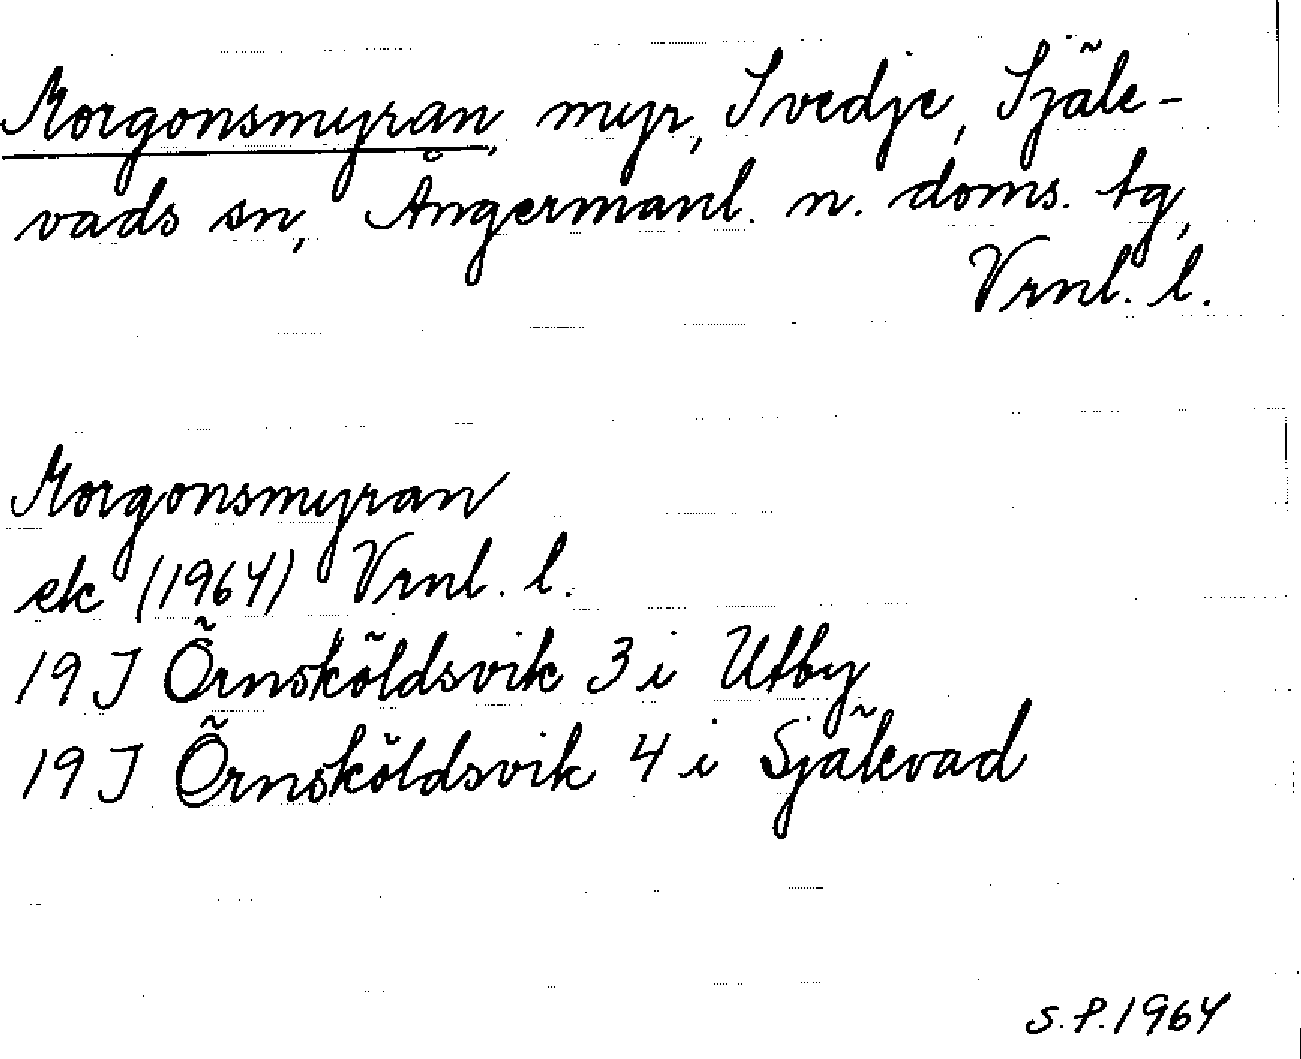 Morgonsmyran, myr, Svedje, Själe-
vads sn, Ångermanl. n. doms. tg,
Vrnl. l.
Morgonsmyran
ek (1964) Vrnl. l.
19 J Örnsköldsvik 3 i Utby
19 J Örnsköldsvik 4 i Själevad
S.P. 1964